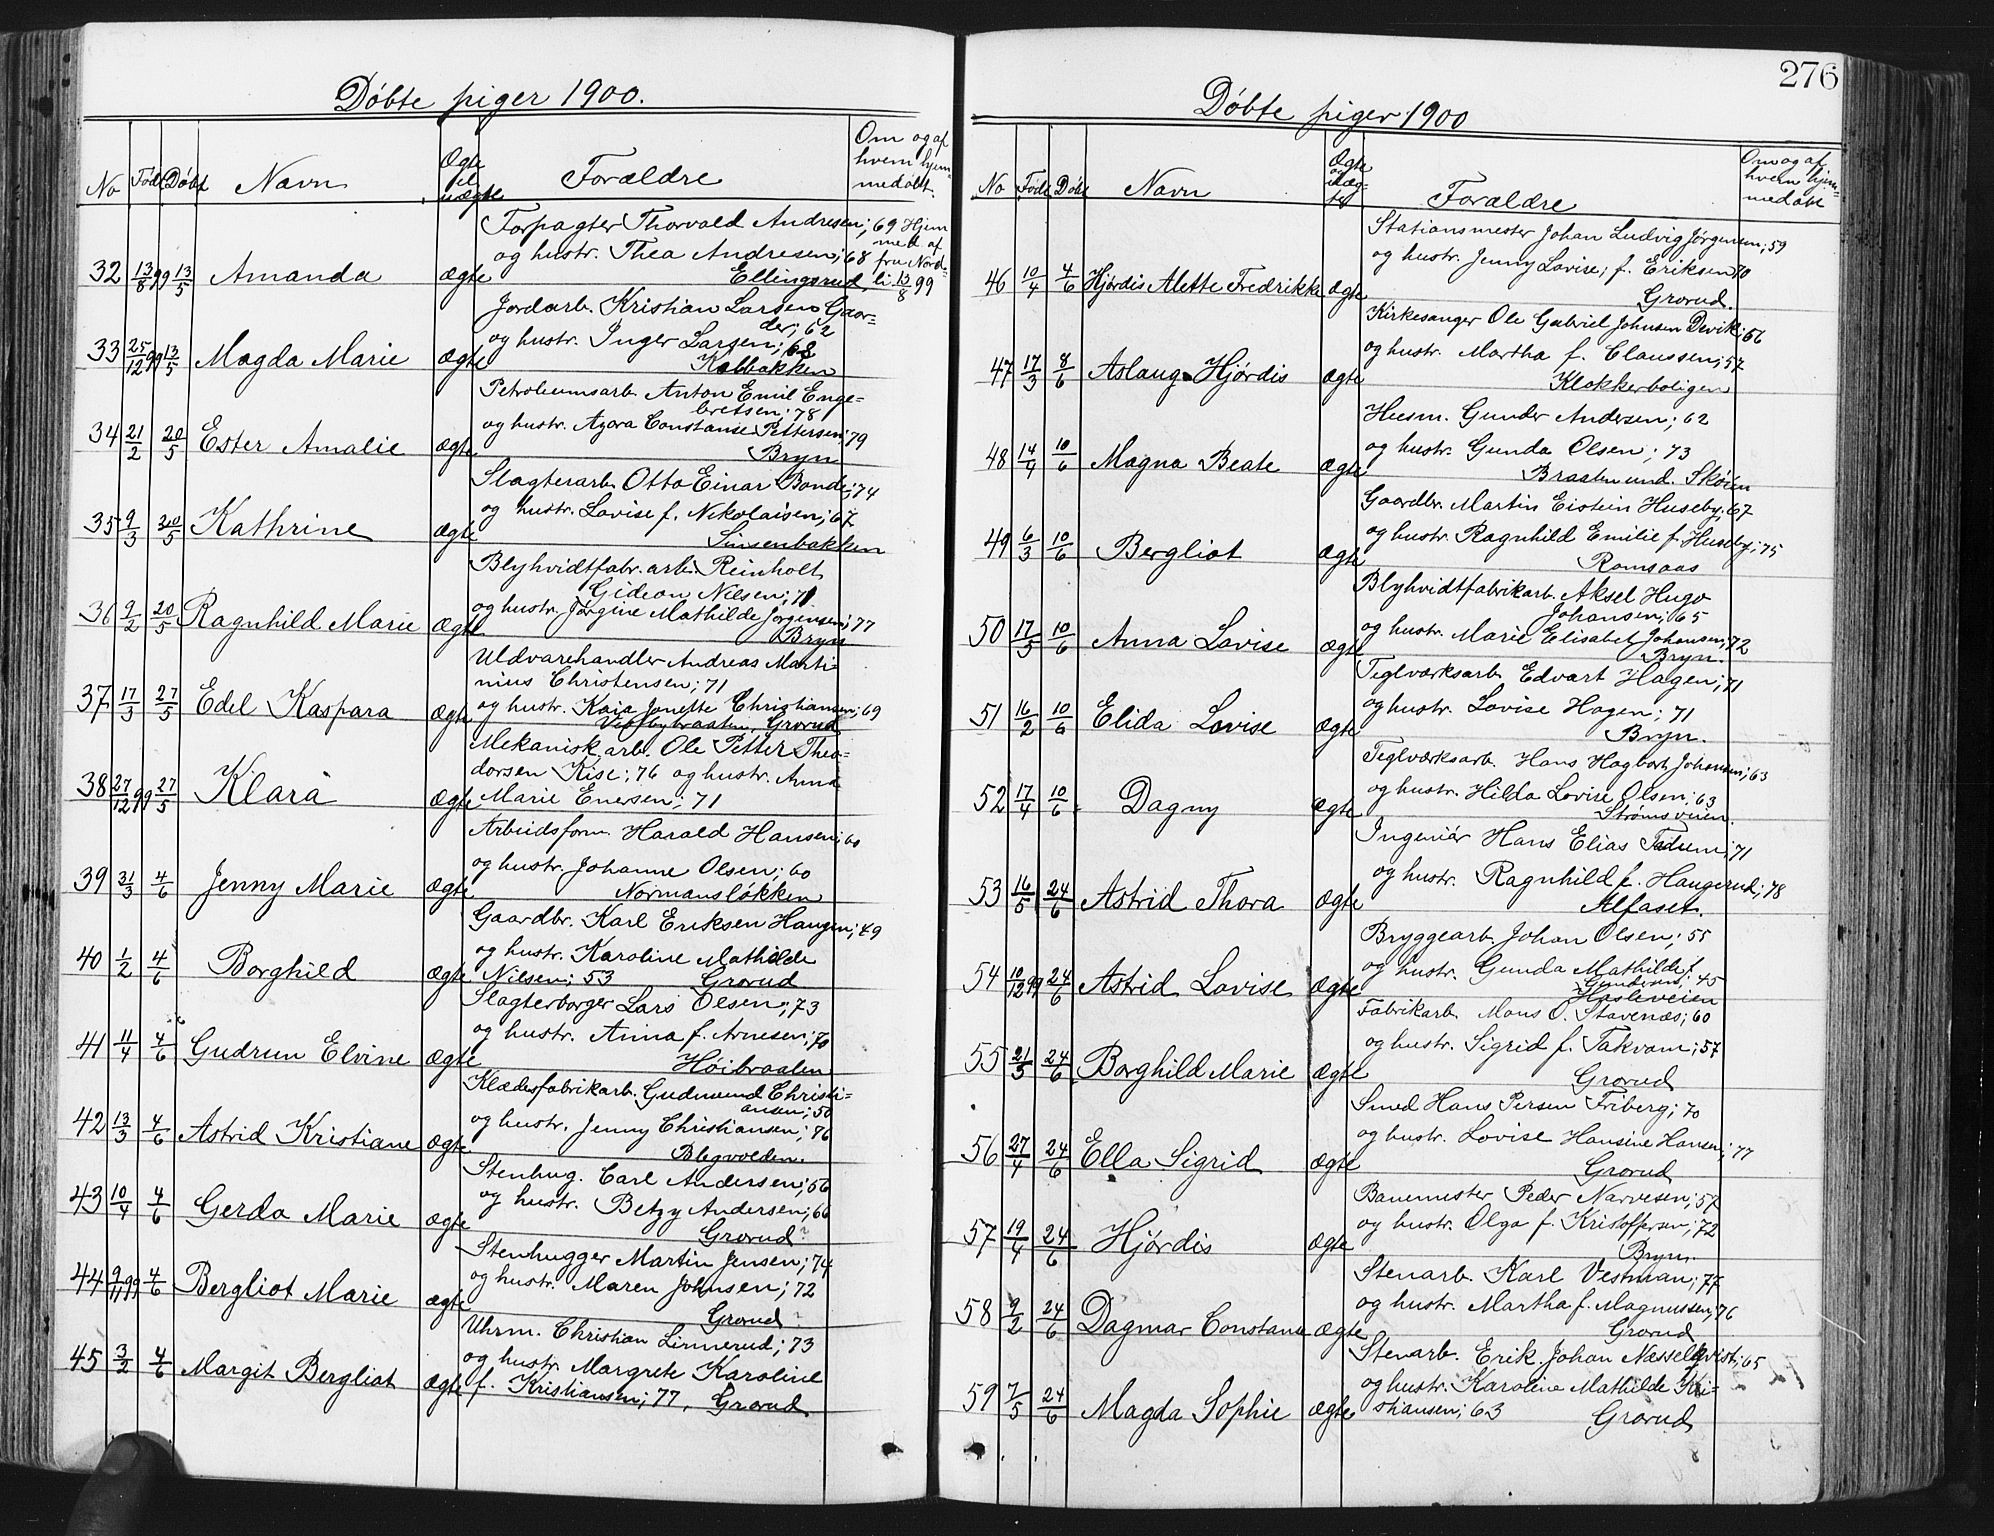 276
Døbte piger 1900.
No Født Døbt Navn Ægte el uægte Forældre Om og af hvem hjemmedøbt.
Forpagter Thorvald Andresen; 69 Hjem
og hustr. Thea Andresen; 68 med af fru Nord-
32 13/8 99 13/5 Amanda ægte Ellingsrud, li 13/8 99
Jordarb. Kristian Larsen Gaar-
der; 62
og hustr. Inger Larsen; 68
33 25/12 99 13/5 Magda Marie ægte Kalbakken
Petroleumsarb. Anton Emil Enge-
bretsen; 78
og hustr. Agora Constanse Pettersen; 79
34 21/2 20/5 Ester Amalie ægte Bryn
Slagterarb. Otto Einar Bonde; 74
og hustr. Lovise f. Nikolaisen; 67
35 9/3 20/5 Kathrine ægte Sinsenbakken
Blyhvidtfabr. arb. Reinholt
Gideon Nilsen; 71
og hustr. Jørgine Mathilde Jørgensen; 77
36 9/2 20/5 Ragnhild Marie ægte Bryn
Uldvarehandler Andreas Marti-
nius Christensen; 71
og hustr. Kaja Jonette Christiansen; 69
37 17/3 27/5 Edel Kaspara ægte Grorud
Mekanisk arb. Ole Petter Theo-
dorsen Kise; 76 og hustr. Anna
38 27/12 99 27/5 Klara ægte Marie Enersen; 71
Arbeidsform. Harald Hansen; 60
og hustr. Johanne Olsen; 60
39 31/3 4/6 Jenny Marie ægte Normansløkken
Gaardbr. Karl Eriksen Haugen; 49
og hustr. Karoline Mathilde
40 1/2 4/6 Borghild ægte Nilsen; 53 Grorud
Slagterborger Lars Olsen; 73
og hustr. Anna f. Arnesen; 70
41 11/4 4/6 Gudrun Elvine ægte Høibraaten
Klædesfabrikarb. Gudmund Christi-
ansen; 50
og hustr. Jenny Christiansen; 76
42 13/3 4/6 Astrid Kristiane ægte Blegvolden.
Stenhug. Carl Andersen; 56
og hustr. Betzy Andersen; 66
43 10/4 4/6 Gerda Marie ægte Grorud
Stenhugger Martin Jensen; 74
og hustr. Maren Johnsen; 72
44 9/11 99 4/6 Bergliot Marie ægte Grorud
Uhrm. Christian Linnerud; 73
og hustr. Margrete Karoline
45 3/2 4/6 Margit Bergliot ægte f. Kristiansen; 77, Grorud
Døbte piger 1900
No Født Døbt Navn Ægte og uæg-te Forældre Om og af hvem hjem-medøbt
Stationsmester Johan Ludvig Jørgensen; 59
og hustr. Jenny Lovise; f. Eriksen 70
46 10/4 4/6 Hjørdis Alette Fredrikke ægte Grorud.
Kirkesanger Ole Gabriel Johnsen Devik; 56
og hustr. Martha f. Claussen; 57
47 17/3 8/6 Aslaug Hjørdis ægte Klokkerboligen
Husm. Gunder Andersen; 62
og hustr. Gunda Olsen; 73
48 14/4 10/6 Magna Beate ægte Braaten und. Skøien
Gaardbr. Martin Eistein Huseby; 67
og hustr. Ragnhild Emilie f. Huseby; 75
49 6/3 10/6 Bergliot ægte Romsaas
Blyhvidtfabrikarb. Aksel Hugo
Johansen; 65
og hustr. Marie Elisabet Johansen; 72
50 17/5 10/6 Anna Lovise ægte Bryn.
Teglværksarb. Edvart Hagen; 71
og hustr. Lovise Hagen; 71
51 16/2 10/6 Elida Lovise ægte Bryn.
Teglværksarb. Hans Hagbart Johansen; 63
og hustr. Hilda Lovise Olsen; 63
52 17/4 10/6 Dagny ægte Strømsveien.
Ingeniør Hans Elias; 71
og hustr. Ragnhild f. Haugerud; 78
53 16/5 24/6 Astrid Thora ægte Alfaset.
Bryggearb. Johan Olsen; 55
og hustr. Gunda Mathilde f.
45
54 10/12 99 24/6 Astrid Lovise ægte Hasleveien
Fabrikarb. Mons O. Stavenæs; 60
og hustr. Sigrid f. Takvam; 57
55 21/5 24/6 Borghild Marie ægte Grorud
Smed Hans Persen Friberg; 70
og hustr. Lovise Hansine Hansen; 77
56 27/4 24/6 Ella Sigrid ægte Grorud
Banemester Peder Narvesen; 57
og hustr. Olga f. Kristoffersen; 72
57 19/4 24/6 Hjørdis ægte Bryn.
Stenarb. Karl Vestman; 77
og hustr. Martha f. Magnussen; 76
58 9/2 24/6 Dagmar Constane ægte Grorud
Stenarb. Erik Johan Næsselqvist; 65
og hustr. Karoline Mathilde Kri-
59 7/5 24/6 Magda Sophie ægte stiansen; 63 Grorud